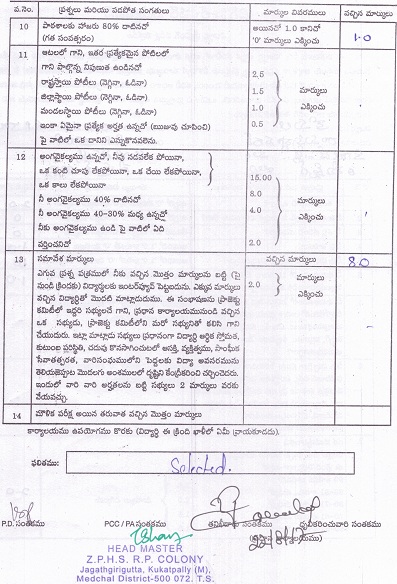 వ.నెం. ప్రశ్నలు మరియు పడపోత సంగతులు మార్కుల వివరములు వచ్చిన మార్కులు
10 పాఠశాలకు హాజరు 80% దాటినచో అయినచో 1.0 కానిచో 1.0
(గత సంవత్సరం) '0' మార్కులు ఎక్కించు
11 ఆటలలో గాని, ఇతర ప్రత్యేకమైన పోటిలలో
గాని పాల్గొన్న నిపుణత ఉండినచో 2.5
రాష్ట్రస్థాయి పోటీలు (నెగ్గినా, ఓడినా) 1.5 మార్కులు
జిల్లాస్థాయి పోటీలు (నెగ్గినా, ఓడినా) 1.0 ఎక్కించు
మండలస్థాయి పోటీలు (నెగ్గినా, ఓడినా) 0.5
ఇంకా ఏమైనా ప్రత్యేక అర్హత ఉన్నచో (ఋజువు చూపించి)
పై వాటిలో ఒక దానిని ఎన్నుకొనవలెను.
12 అంగవైకల్యము ఉన్నచో, నీవు నడవలేక పోయినా,
ఒక కంటి చూపు లేకపోయినా, ఒక చేయి లేకపోయినా,
ఒక కాలు లేకపోయినా 15.00
నీ అంగవైకల్యము 40% దాటినచో 8.0 మార్కులు
నీ అంగవైకల్యము 40-30% మధ్య ఉన్నచో 4.0 ఎక్కించు
నీకు అంగవైకల్యము ఉండి పై వాటిలో ఏది
వర్తించనిచో 2.0
13 సమావేశ మార్కులు వచ్చిన మార్కులు 8.0
ఎగువ ప్రశ్న పత్రములో నీకు వచ్చిన మొత్తం మార్కులను బట్టి (పై
నుండి క్రిందకు) విద్యార్థులకు ఇంటర్వ్యూవ్ పెట్టబడును. ఎక్కువ మార్కులు 2.0 మార్కులు
వచ్చిన విద్యార్థితో మొదటి మాట్లాడుదుము. ఈ సంభాషణను ప్రాజెక్టు ఎక్కించు
కమిటిలో ఇద్దరి సభ్యులచే గాని, ప్రధాన కార్యాలయమునుండి వచ్చిన
ఒక సభ్యుడు, ప్రాజెక్టు కమిటీలోని మరో సభ్యునితో కలిసి గాని
చేయుదురు. ఇట్లా మాట్లాడు సభ్యులు ప్రధానంగా విద్యార్థి ఆర్థిక స్తోమత,
కుటుంబ పరిస్థితి, చదువు కొనసాగించుటలో ఆసక్తి, వ్యక్తిత్వము, సాంఘిక
సేవాతత్పరత, వారిసంఘములోని పెద్దలకు విద్యా అవసరమును
తెలియజెప్పుట మొదలగు అంశములలో దృష్టిని కేంద్రీకరించి చర్చించెదరు.
ఇందులో వారి వారి అర్హతలను బట్టి సభ్యులు 2 మార్కులు వరకు
వేయవచ్చు.
14 మౌళిక పరీక్ష అయిన తరువాత వచ్చిన మొత్తం మార్కులు
కార్యాలయము ఉపయోగము కొరకు (విద్యార్థి ఈ క్రింది ఖాళీలో ఏమీ వ్రాయకూడదు).
ఫలితము: Selected.
P.D. సంతకము PCC / PA సంతకము
HEAD MASTER
Z.P.H.S. R.P. COLONY
Jagathgirigutta, Kukatpally (M),
Medchal District-500 072. T.S.